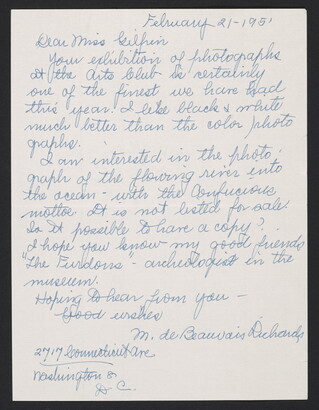 February 21-1951
Dear Miss Gilpin
Your exhibition of photographs
at the Arts Club is certainly
one of the finest we have had
this year. I like black & white
much better than the color photo
graphs.
I am interested in the photo
graph of the flowing river into
the ocean - with the Confucious
mottoe. It is not listed for sale.
Is it possible to have a copy?
I hope you know my good friends
"The Fundons" - archeologist in the
museum.
Hoping to hear from you -
Good wishes
M. de Beauvais Richards
2717 Connecticut Ave
Washington 8.
D C.